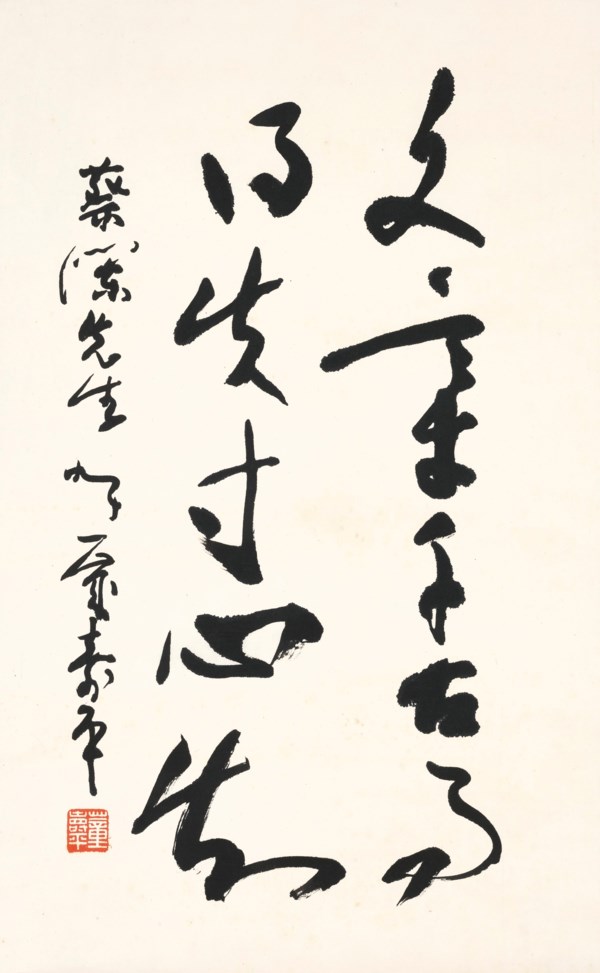 文章千古事
得失寸心知
蔡瀾先生 壽平
董壽平